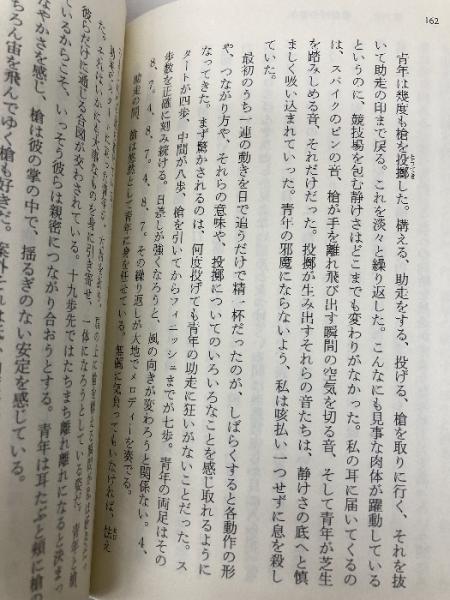 162
青年は幾度も槍を投擲した。構える、助走をする、投げる、槍を取りに行く、それを抜
いて助走の印まで戻る。これを淡々と繰り返した。こんなにも見事な肉体が躍動している
というのに、競技場を包む静けさはどこまでも変わりがなかった。私の耳に届いてくるの
は、スパイクのピンの音、槍が手を離れ飛び出す瞬間の空気を切る音、そして青年が芝生
を踏みしめる音、それだけだった。投擲が生み出すそれらの音たちは、静けさの底へと慎
ましく吸い込まれていった。青年の邪魔にならないよう、私は咳払い一つせずに息を殺し
ていた。
最初のうち一連の動きを目で追うだけで精一杯だったのが、しばらくすると各動作の形
や、つながり方や、それらの意味や、投擲についてのいろいろなことを感じ取れるように
なってきた。まず驚かされるのは、何度投げても青年の助走に狂いがないことだった。ス
タートが四歩、中間が八歩、槍を引いてからフィニッシュまでが七歩。青年の両足はその
歩数を正確に刻み続ける。日差しが強くなろうと、風の向きが変わろうと関係ない。4、
8、7、4、8、7、4、8、7。その繰り返しが大地でメロディーを奏でる。
助走の間、槍は悠然として青年に身を任せている。無闇に気負ってもいなければ、怯え
大事なものを身に引き寄せ、一体になろうとしている姿だ。青年と槍
彼らだけに通じる合図が交わされている。十九歩先ではたちまち離れ離れになると決まっ
ているからこそ、いっそう彼らは親密につながり合おうとする。青年は耳たぶと頬に槍の
なやかさを感じ、槍は彼の掌の中で、揺るぎのない安定を感じている。
ちろん宙を飛んでゆく槍も好きだ。